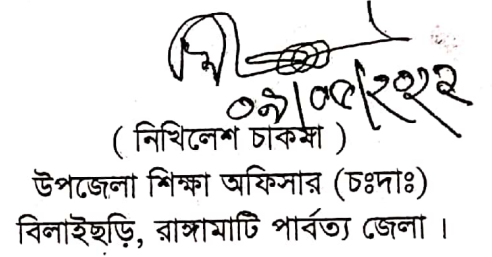 ০৯/০৫/২০২২
( নিখিলেশ চাকমা )
উপজেলা শিক্ষা অফিসার (চঃদাঃ)
বিলাইছড়ি, রাঙ্গামাটি পার্বত্য জেলা ।